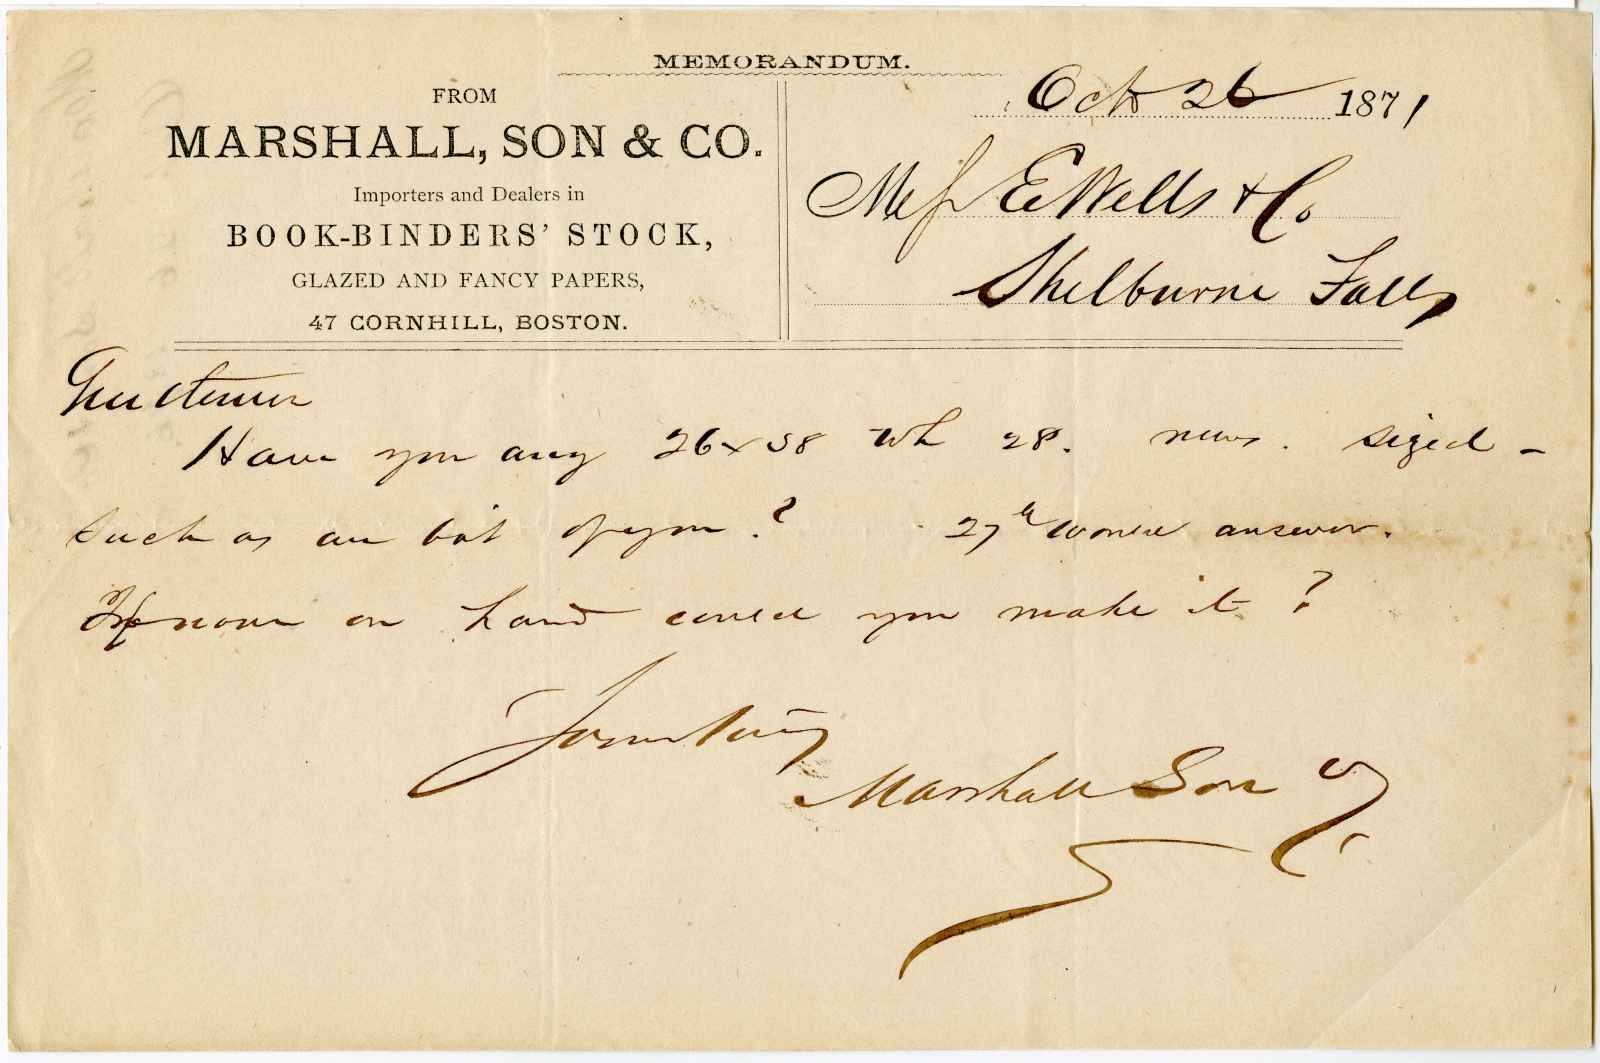 MEMORANDUM.
FROM
MARSHALL, SON & CO.
Importers and Dealers in
BOOK-BINDERS' STOCK,
GLAZED AND FANCY PAPERS,
47 CORNHILL, BOSTON.
Oct 26 1871
Mess E Wells & Co
Shelburne Falls
Gentlemen
Have you any 26x38 wh 28. news. sized -
such as we bot of you? 27 would answer.
If none on hand could you make it?
Yours truly
Marshall Son & Co